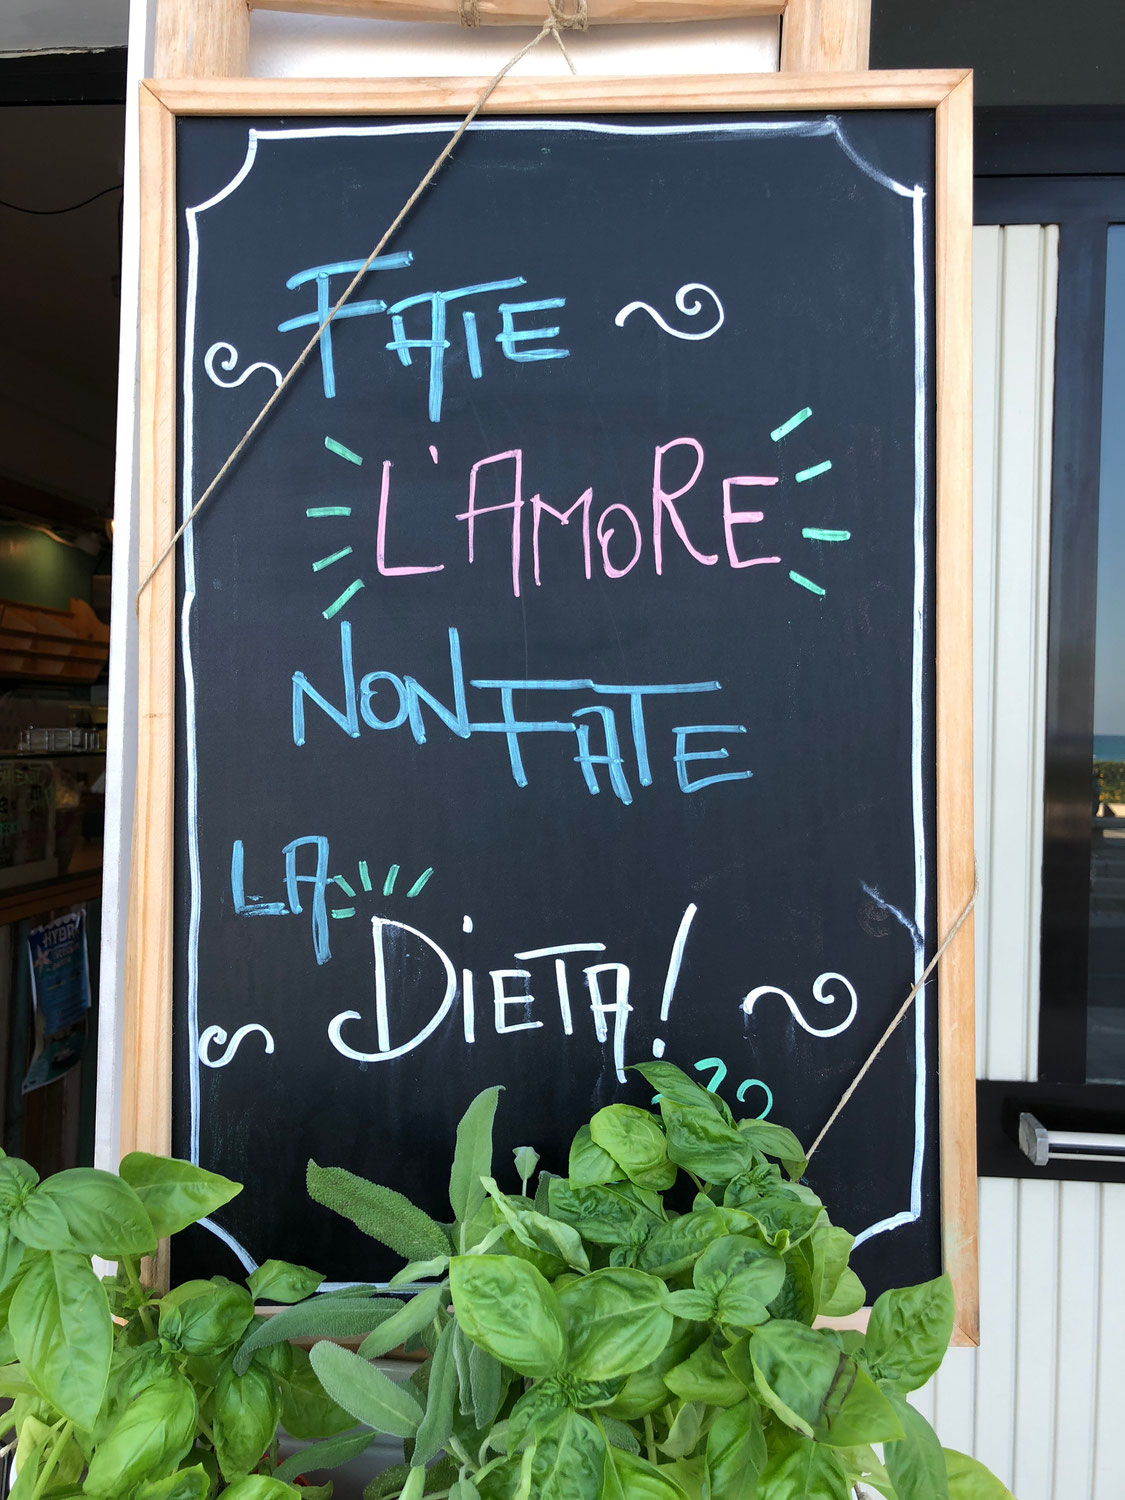 FATE
L'AMORE
NON FATE
LA
DIETA!